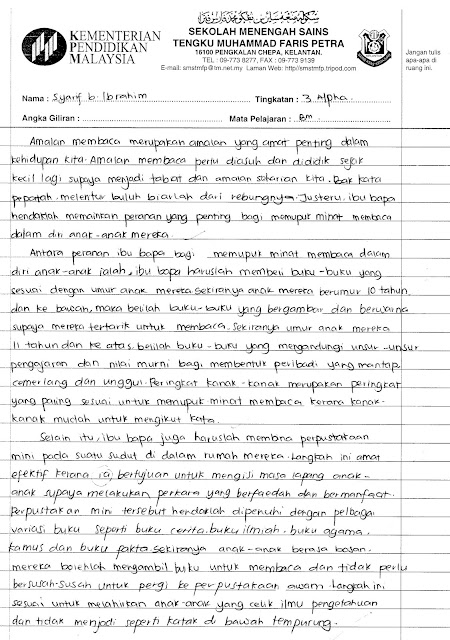 KEMENTERIAN
PENDIDIKAN
MALAYSIA
SEKOLAH MENENGAH SAINS
TENGKU MUHAMMAD FARIS PETRA
16100 PENGKALAN CHEPA, KELANTAN.
TEL : 09-773 8277, FAX : 09-773 9139
E-mail: smstmfp@tm.net.my Laman Web: http://smstmfp.tripod.com
Jangan tulis
apa-apa di
ruang ini.
Nama : Syarif b. Ibrahim Tingkatan : 3 Alpha
Angka Giliran : Mata Pelajaran : BM
Amalan membaca merupakan amalan yang amat penting dalam
kehidupan kita. Amalan membaca perlu diasuh dan dididik sejak
kecil lagi supaya menjadi tabiat dan amalan seharian kita. Bak kata
pepatah, melentur buluh biarlah dari rebungnya. Justeru, ibu bapa
hendaklah memainkan peranan yang penting bagi memupuk minat membaca
dalam diri anak-anak mereka.
Antara peranan ibu bapa bagi memupuk minat membaca dalam
diri anak-anak ialah, ibu bapa haruslah memberi buku-buku yang
sesuai dengan umur anak mereka. Sekiranya anak mereka berumur 10 tahun
dan ke bawah, maka belilah buku-buku yang bergambar dan berwarna
supaya mereka tertarik untuk membaca. Sekiranya umur anak mereka
11 tahun dan ke atas, belilah buku-buku yang mengandungi unsur-unsur
pengajaran dan nilai murni bagi membentuk peribadi yang mantap,
cemerlang dan unggul. Peringkat kanak-kanak merupakan peringkat
yang paling sesuai untuk memupuk minat membaca kerana kanak-
kanak mudah untuk mengikut kata.
Selain itu, ibu bapa juga haruslah membina perpustakaan
mini pada suatu sudut di dalam rumah mereka. Langkah ini amat
efektif kerana ia bertujuan untuk mengisi masa lapang anak-
anak supaya melakukan perkara yang berfaedah dan bermanfaat.
Perpustakan mini tersebut hendaklah dipenuhi dengan pelbagai
variasi buku seperti buku cerita, buku ilmiah, buku agama,
kamus dan buku fakta. Sekiranya anak-anak berasa bosan,
mereka bolehlah mengambil buku untuk membaca dan tidak perlu
bersusah-susah untuk pergi ke perpustakaan awam. Langkah ini
sesuai untuk melahirkan anak-anak yang celik ilmu pengetahuan
dan tidak menjadi seperti katak di bawah tempurung.